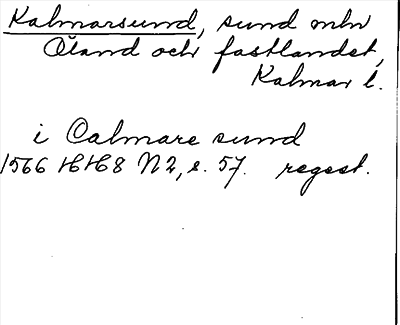 Kalmarsund, sund mln
Öland och fastlandet,
Kalmar l.
i Calmare sund
1566 HH8 N2, s. 57. regest.